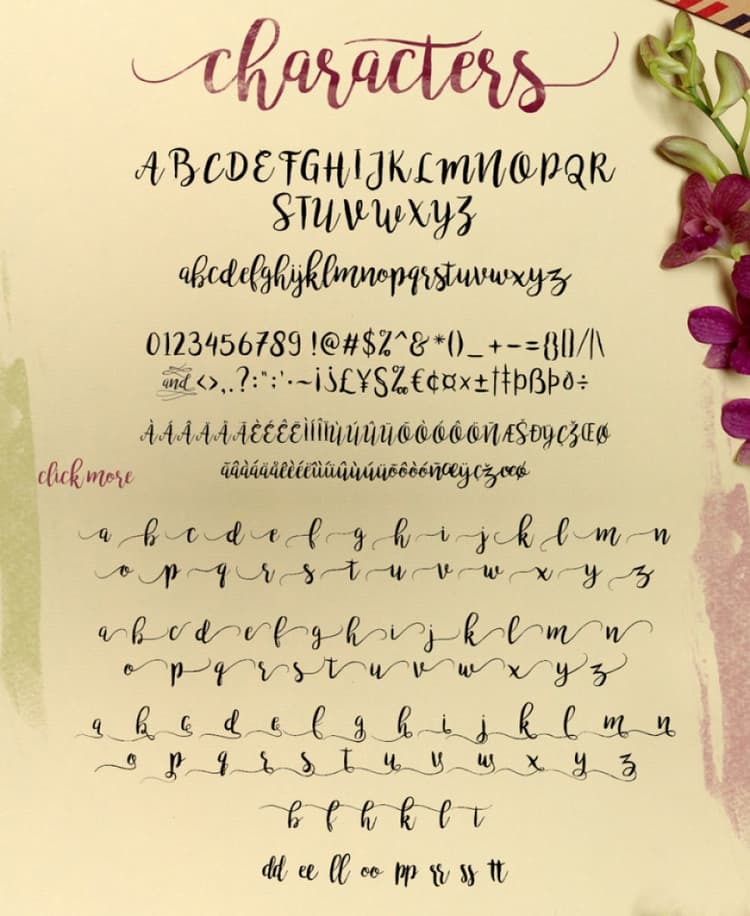 characters
ABCDEFGHIJKLMNOPQR
STUVWXYZ
abcdefghijklmnopqrstuvwxyz
0123456789 !@#$%^&*()_+-={}[]/|\
and <>,.?:";'·~¡¿£¥§‰€¢¤×±†‡þßÞð÷
click more
a b c d e f g h i j k l m n
o p q r s t u v w x y z
a b c d e f g h i j k l m n
o p q r s t u v w x y z
a b c d e f g h i j k l m n
o p q r s t u v w x y z
b f h k l t
dd ee ll oo pp rr ss tt